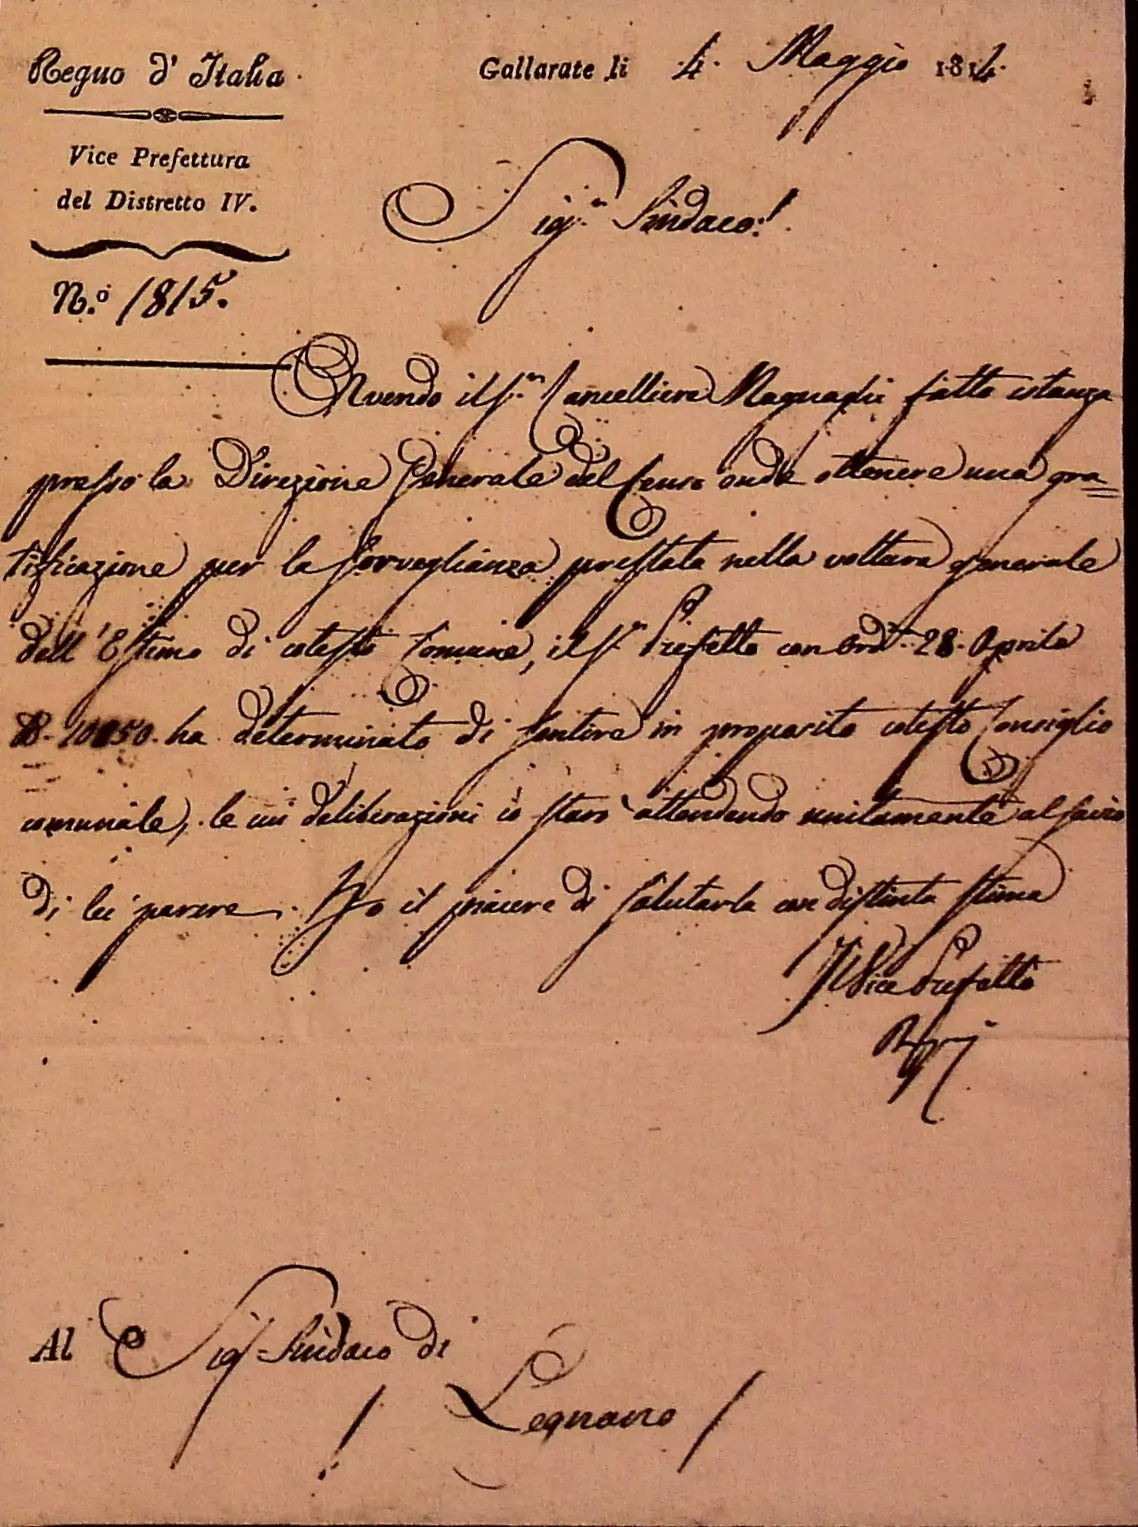 Regno d' Italia.
Gallarate li 4. Maggio 1814.
Vice Prefettura
del Distretto IV.
N.° 1815.
Sig.r Sindaco!
Avendo il S.r Cancelliere fatto istanza
presso la Direzione Generale del Censo onde ottenere una gra=
tificazione per la sorveglianza prestata nella voltura generale
dell' Estimo di cotesto Comune, il S.r Prefetto con Ord.e 28. Aprile
N. 10850. ha determinato di sentire in proposito cotesto Consiglio
comunale, le cui deliberazioni io starò attendendo unitamente al savio
di lei parere. Ho il piacere di salutarla con distinta stima
Il Vice Prefetto
Al Sig.r Sindaco di
Legnano